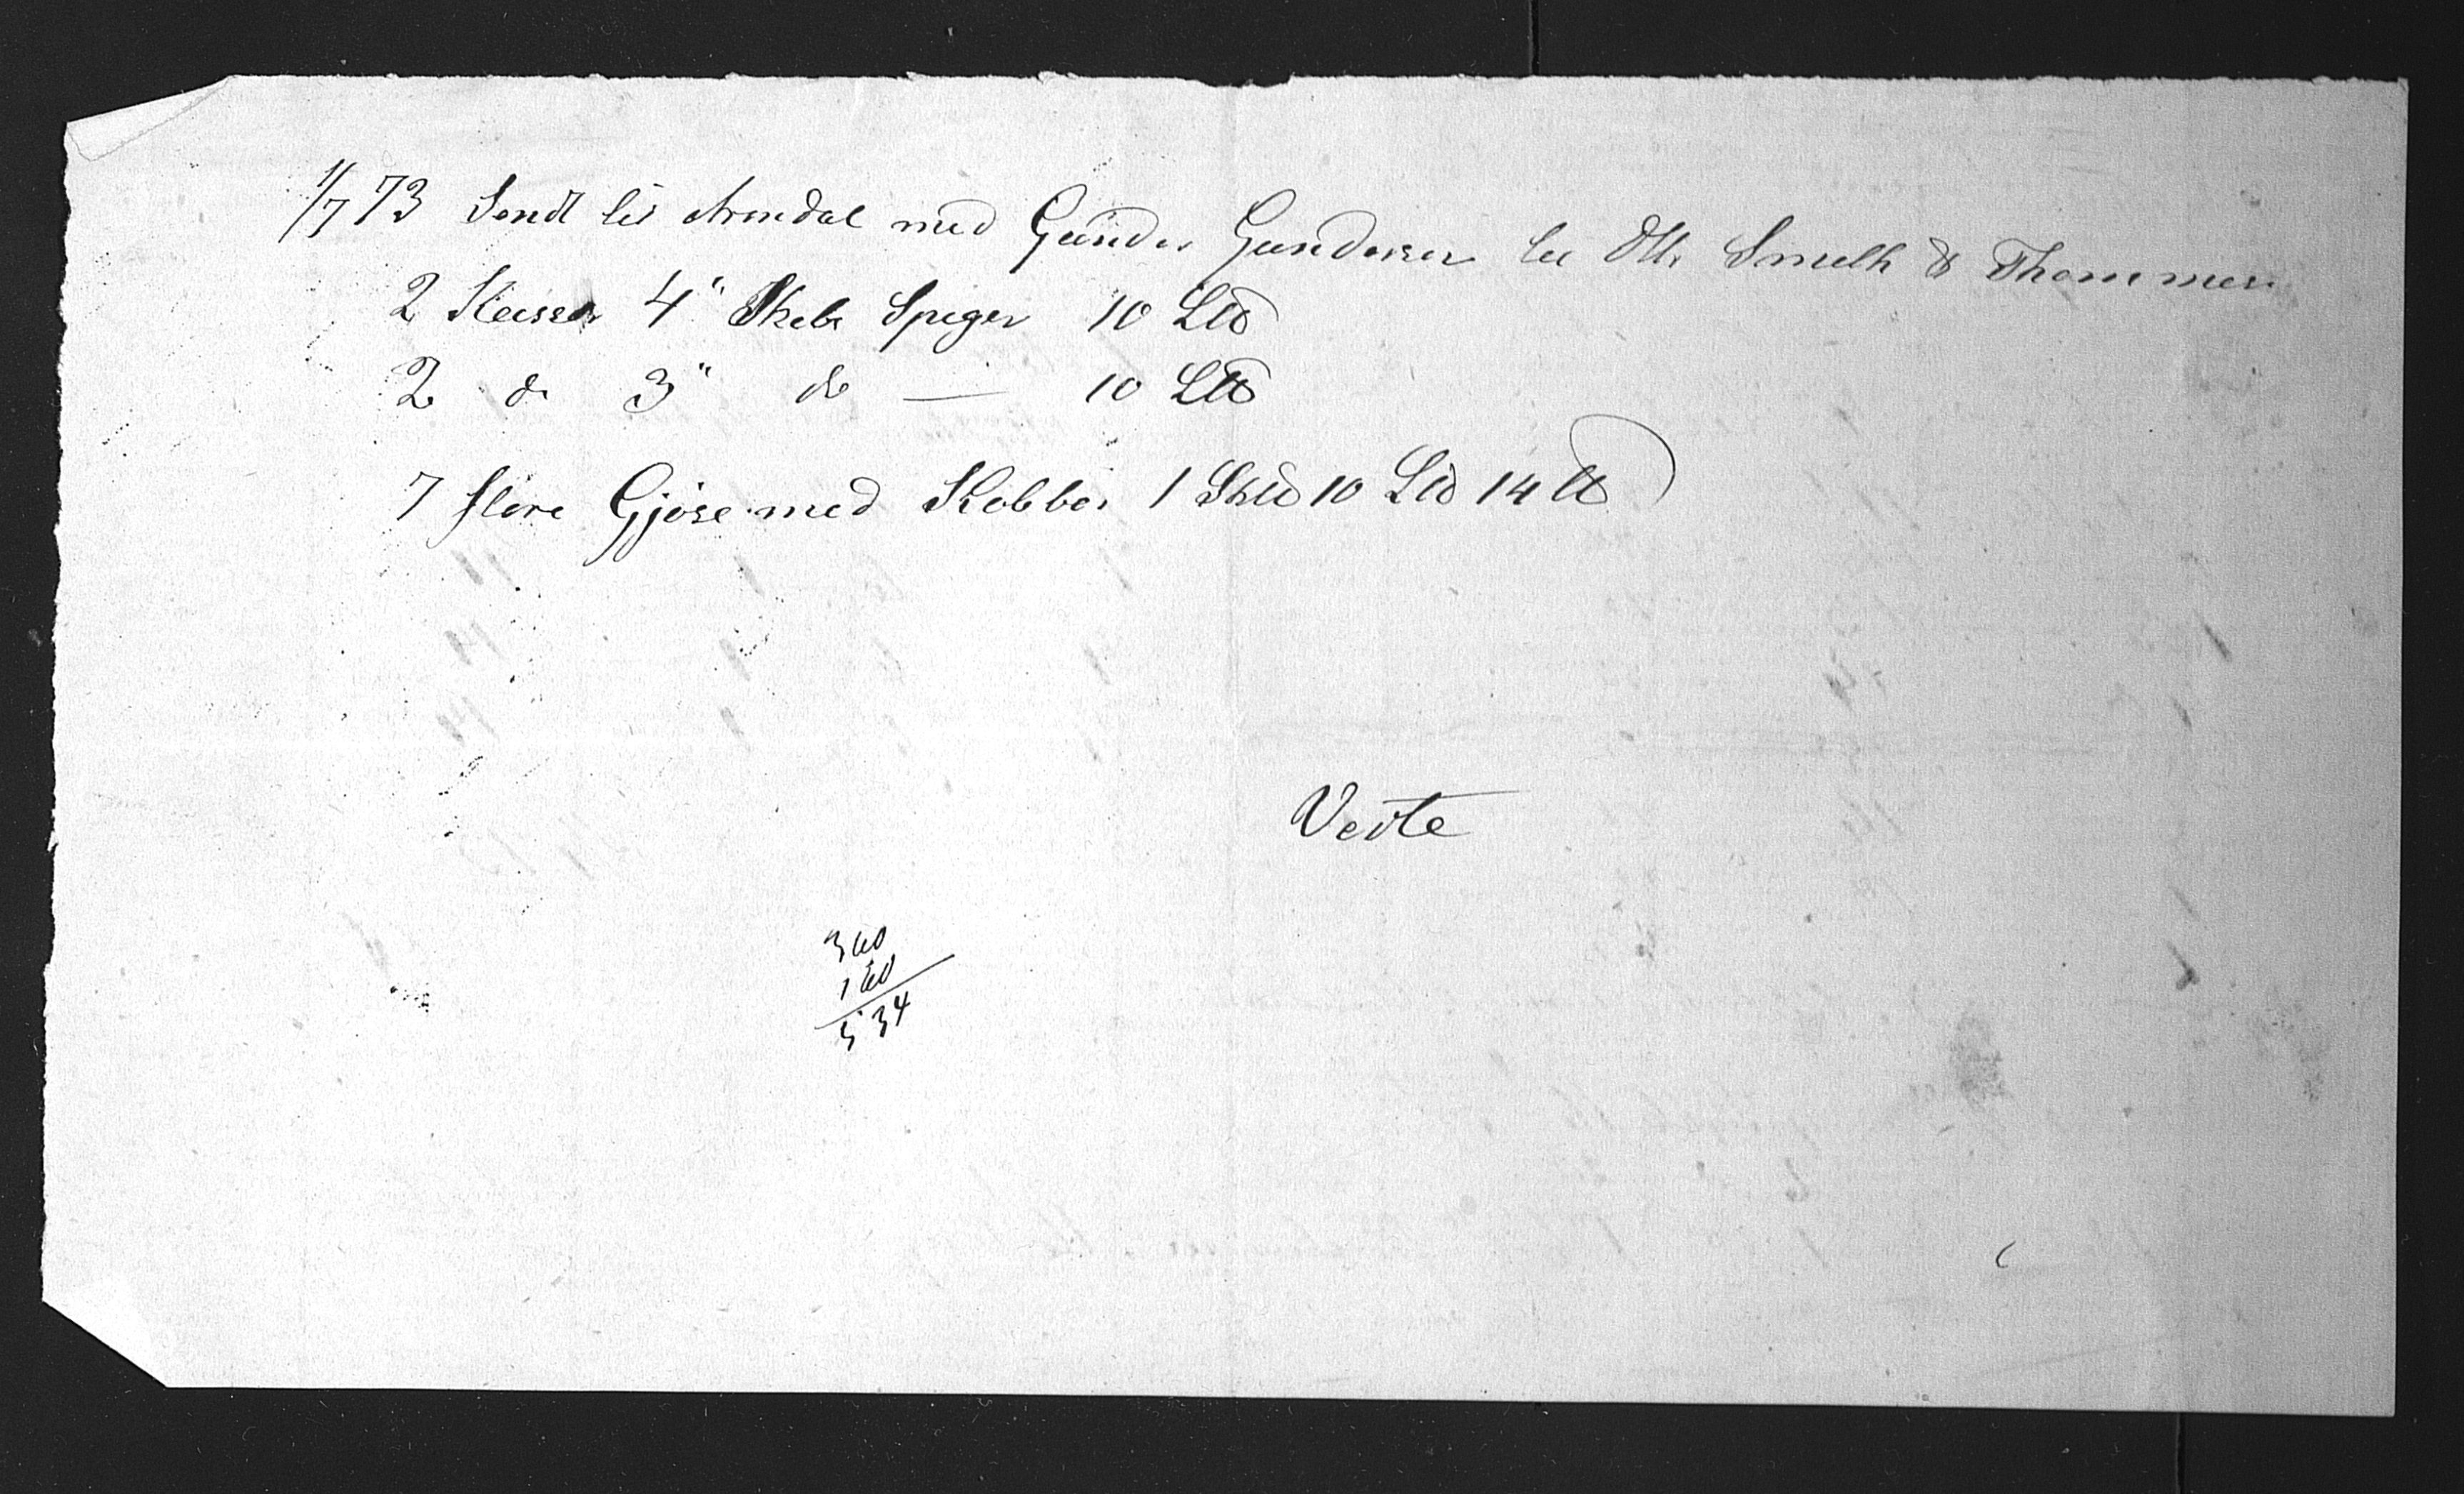 1/7 73 Sendt til Arendal med Gunder Gundersen til Hr. Smith & Thommesen
2 Kasser 4" Skibs Spiger 10 L℔
2 do 3" do — 10 L℔
7 store Gjøse med Kobber 1 Sk℔ 10 L℔ 14 ℔
Verte
360
160
534